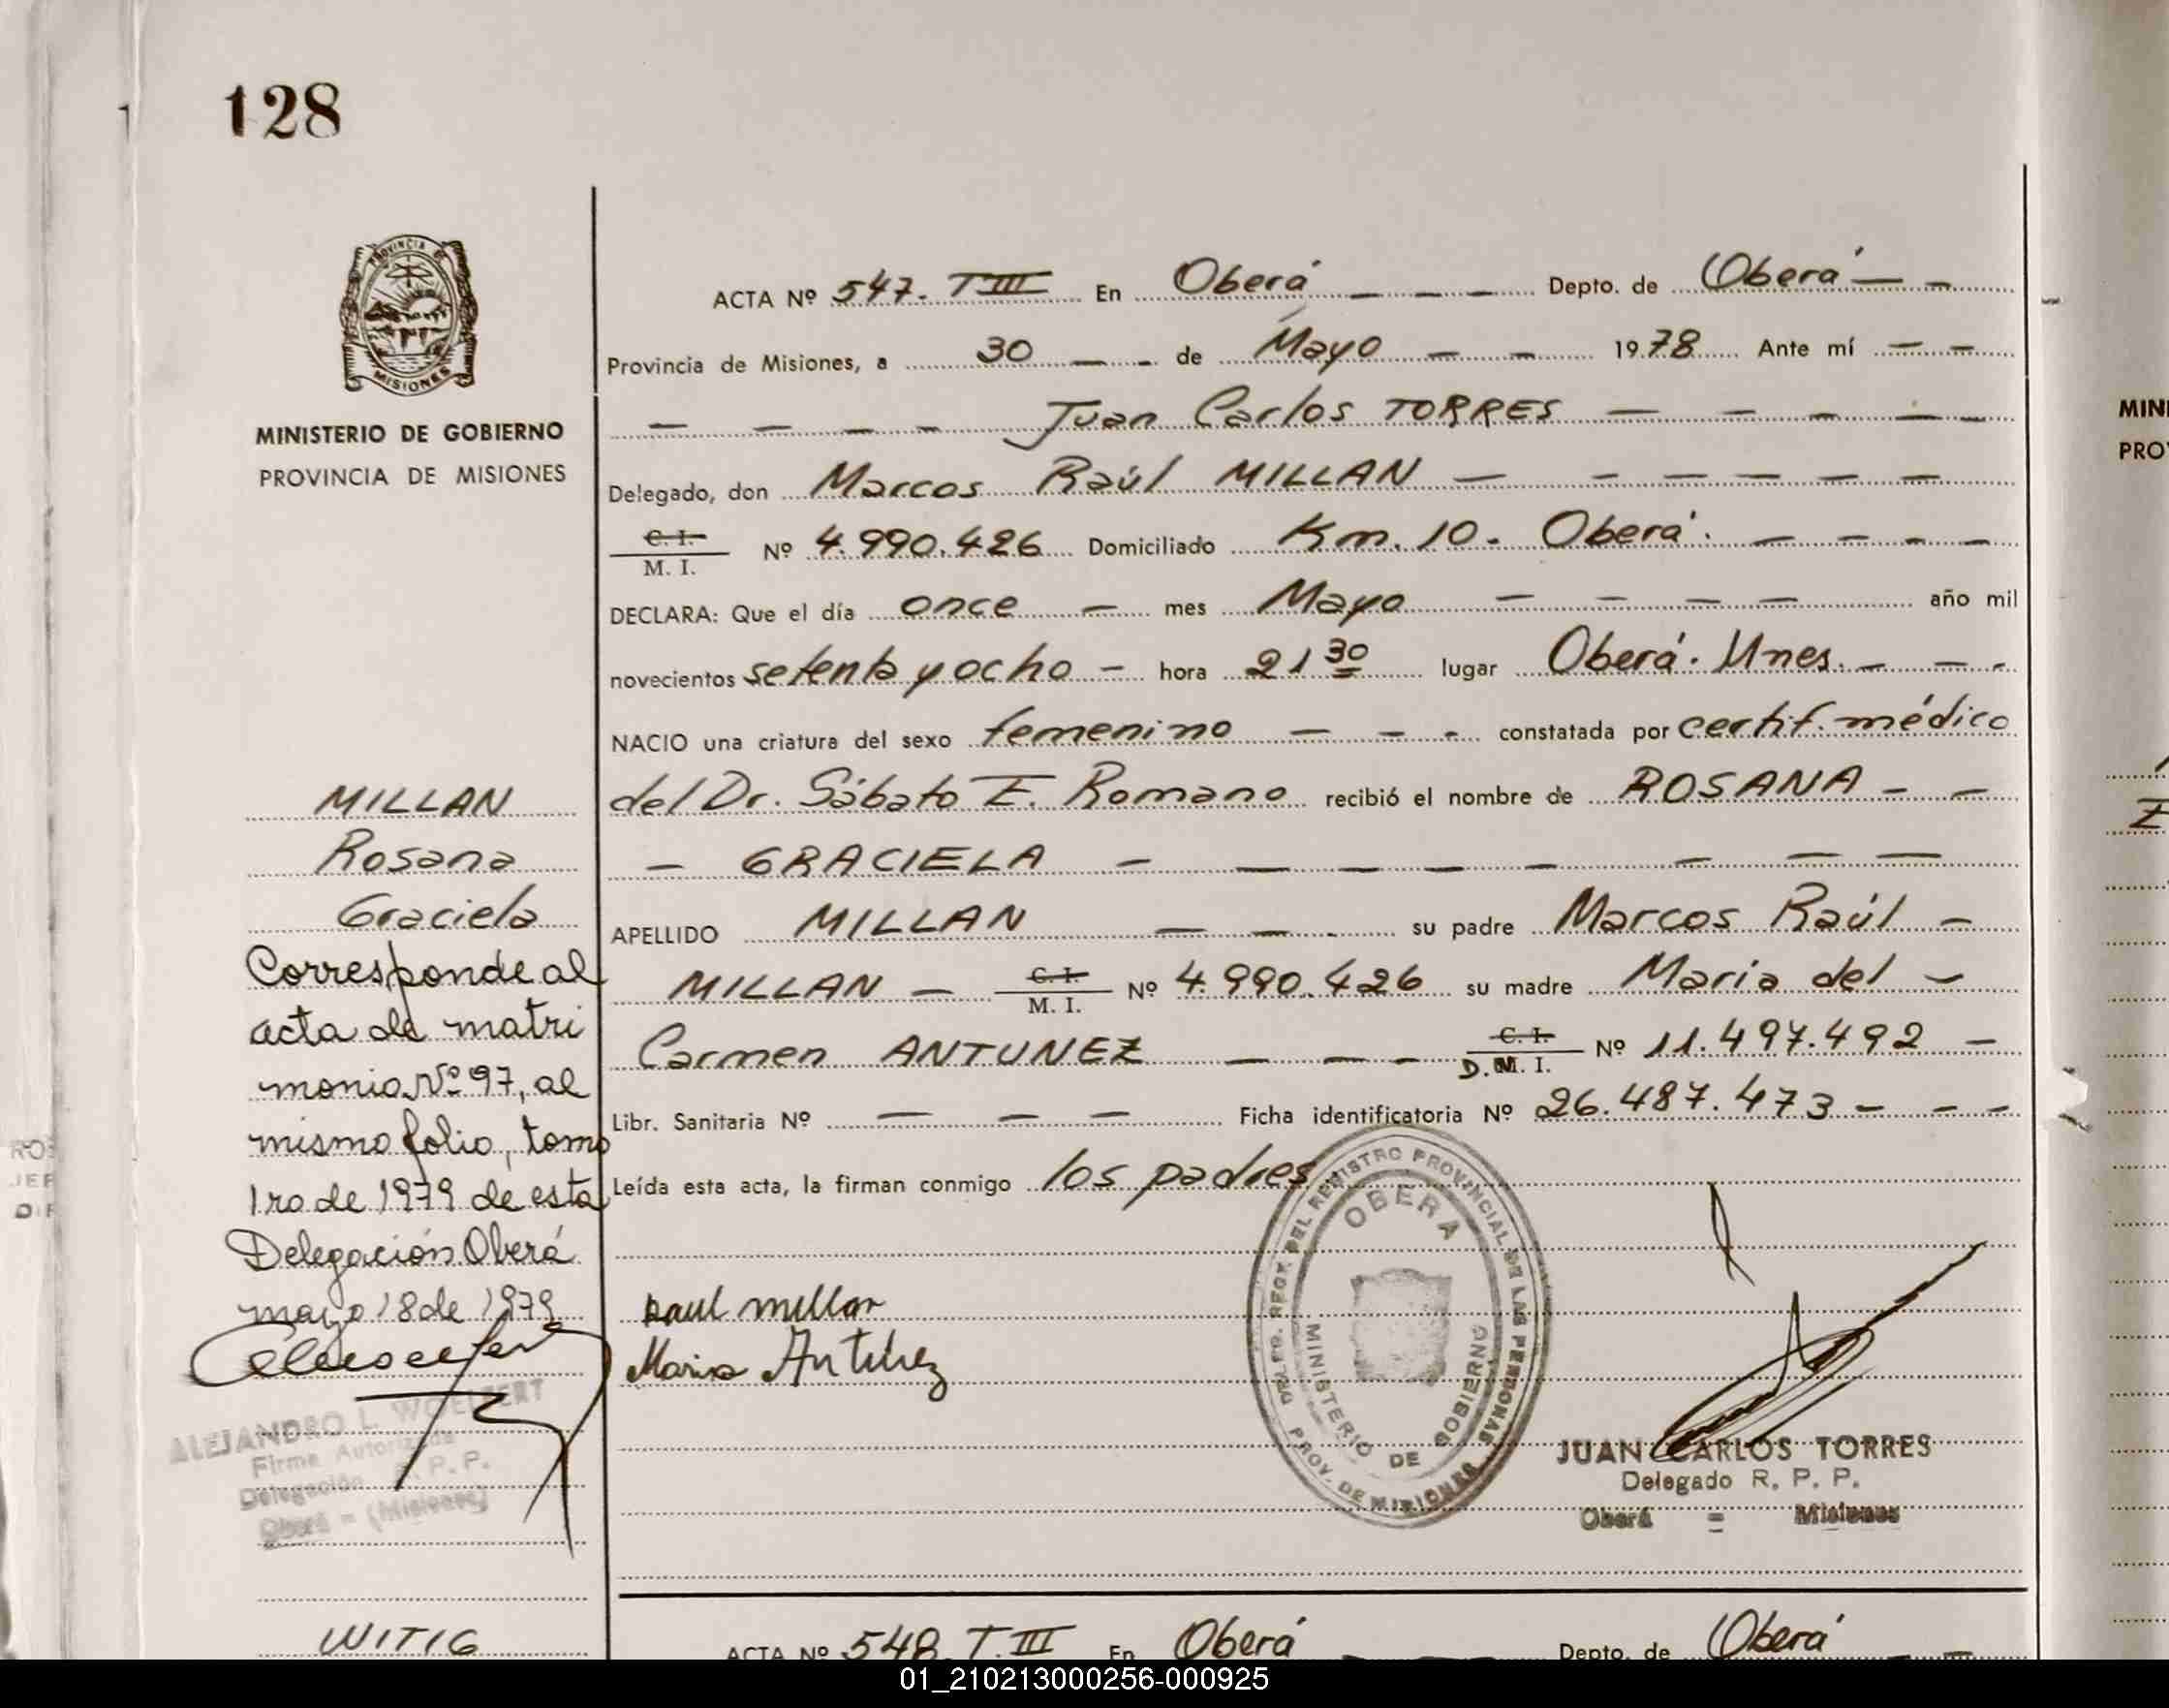 128
PROVINCIA DE
MISIONES
MINISTERIO DE GOBIERNO
PROVINCIA DE MISIONES
ACTA Nº 547. T III En Oberá — — — Depto. de Oberá — —
Provincia de Misiones, a 30 — - de Mayo — — 1978 Ante mí — —
— — — — Juan Carlos TORRES — — — — —
Delegado, don Marcos Raúl MILLAN — — — — — —
C. I.
M. I. Nº 4.990.426 Domiciliado Km. 10. Oberá. — — — —
DECLARA: Que el día once — mes Mayo — — — — año mil
novecientos setenta y ocho — hora 21 30 lugar Oberá. Unes. — — -
NACIO una criatura del sexo femenino — — - constatada por certif. médico
del Dr. Sábato E. Romano recibió el nombre de ROSANA — —
— GRACIELA — — — — — — — —
APELLIDO MILLAN — — - su padre Marcos Raúl —
MILLAN — C. I.
M. I. Nº 4.990.426 su madre Maria del —
Carmen ANTUNEZ — — — - C. I.
D.M. I. Nº 11.497.492 —
Libr. Sanitaria Nº — — — Ficha identificatoria Nº 26.487.473 — — —
Leída esta acta, la firman conmigo los padres
MILLAN
Rosana
Graciela
Corresponde al
acta de matri
monio Nº 97, al
mismo folio, tomo
1ro de 1979 de esta
Delegación Oberá
mayo 18 de 1979
ALEJANDRO L. WOELFERT
Firma Autorizada
Delegación R. P. P.
Oberá = (Misiones)
Raul millan
Maria Antúnez
REGISTRO PROVINCIAL DE LAS PERSONAS
OBERA
MINISTERIO DE GOBIERNO
PROV. DE MISIONES
JUAN CARLOS TORRES
Delegado R. P. P.
Oberá = Misiones
WITIG
ACTA Nº 548. T. III En Oberá — — Depto. de Oberá —
MINI
PRO
01_210213000256-000925